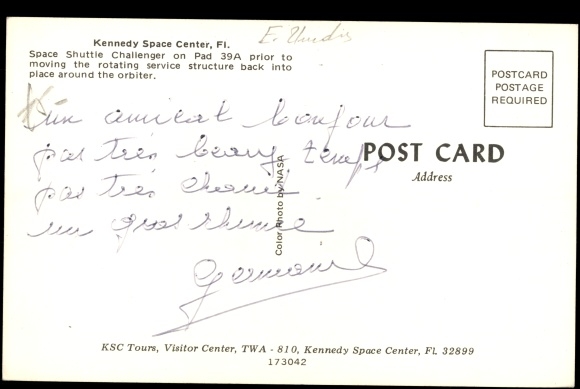 Kennedy Space Center, Fl.
Space Shuttle Challenger on Pad 39A prior to
moving the rotating service structure back into
place around the orbiter.
POSTCARD
POSTAGE
REQUIRED
un amical bonjour
pas très beau temps
pas très chaud
un gros rhume
Germaine
POST CARD
Address
Color Photo by NASA
KSC Tours, Visitor Center, TWA - 810, Kennedy Space Center, Fl. 32899
173042